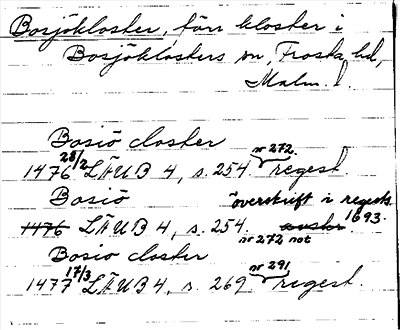 Bosjökloster, förr kloster i
Bosjöklosters sn, Frosta hd,
Malm. l.
Bosiö closter
1476 28/2 LÄUB 4, s. 254 nr 272 regest
Bosiö överskrift i regests
1476 LÄUB 4, s. 254. 1693.
nr 272 not
Bosiö closter
1477 17/3 LÄUB 4, s. 269 nr 291 regest